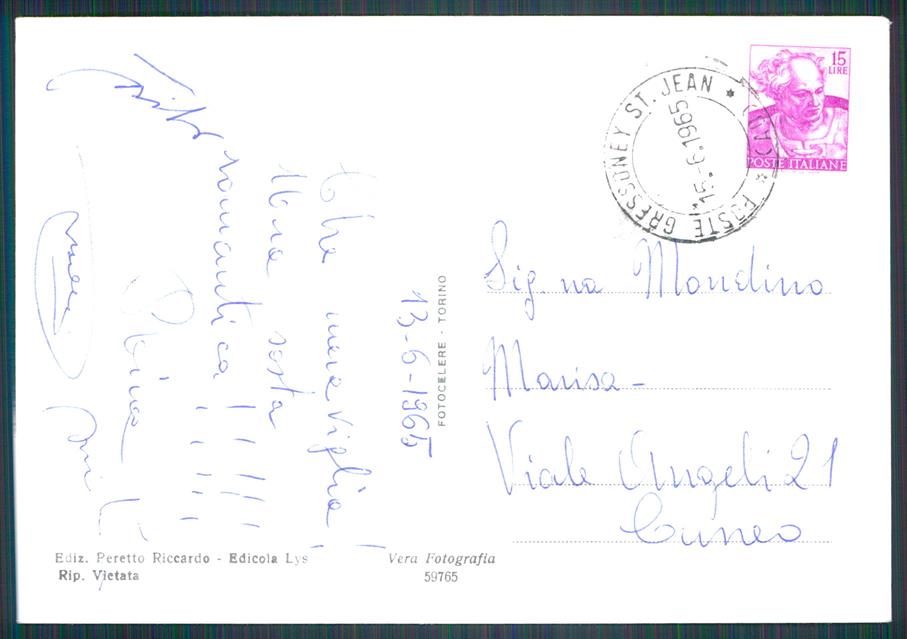 13-6-1965
Che meraviglia!
Una sosta
romantica!!!!!
15 LIRE
POSTE ITALIANE
POSTE GRESSONEY ST. JEAN
15.-6.1965
FOTOCELERE - TORINO
Sig.na Mondino
Marisa -
Viale Angeli 21
Cuneo
Ediz. Peretto Riccardo - Edicola Lys
Rip. Vietata
Vera Fotografia
59765